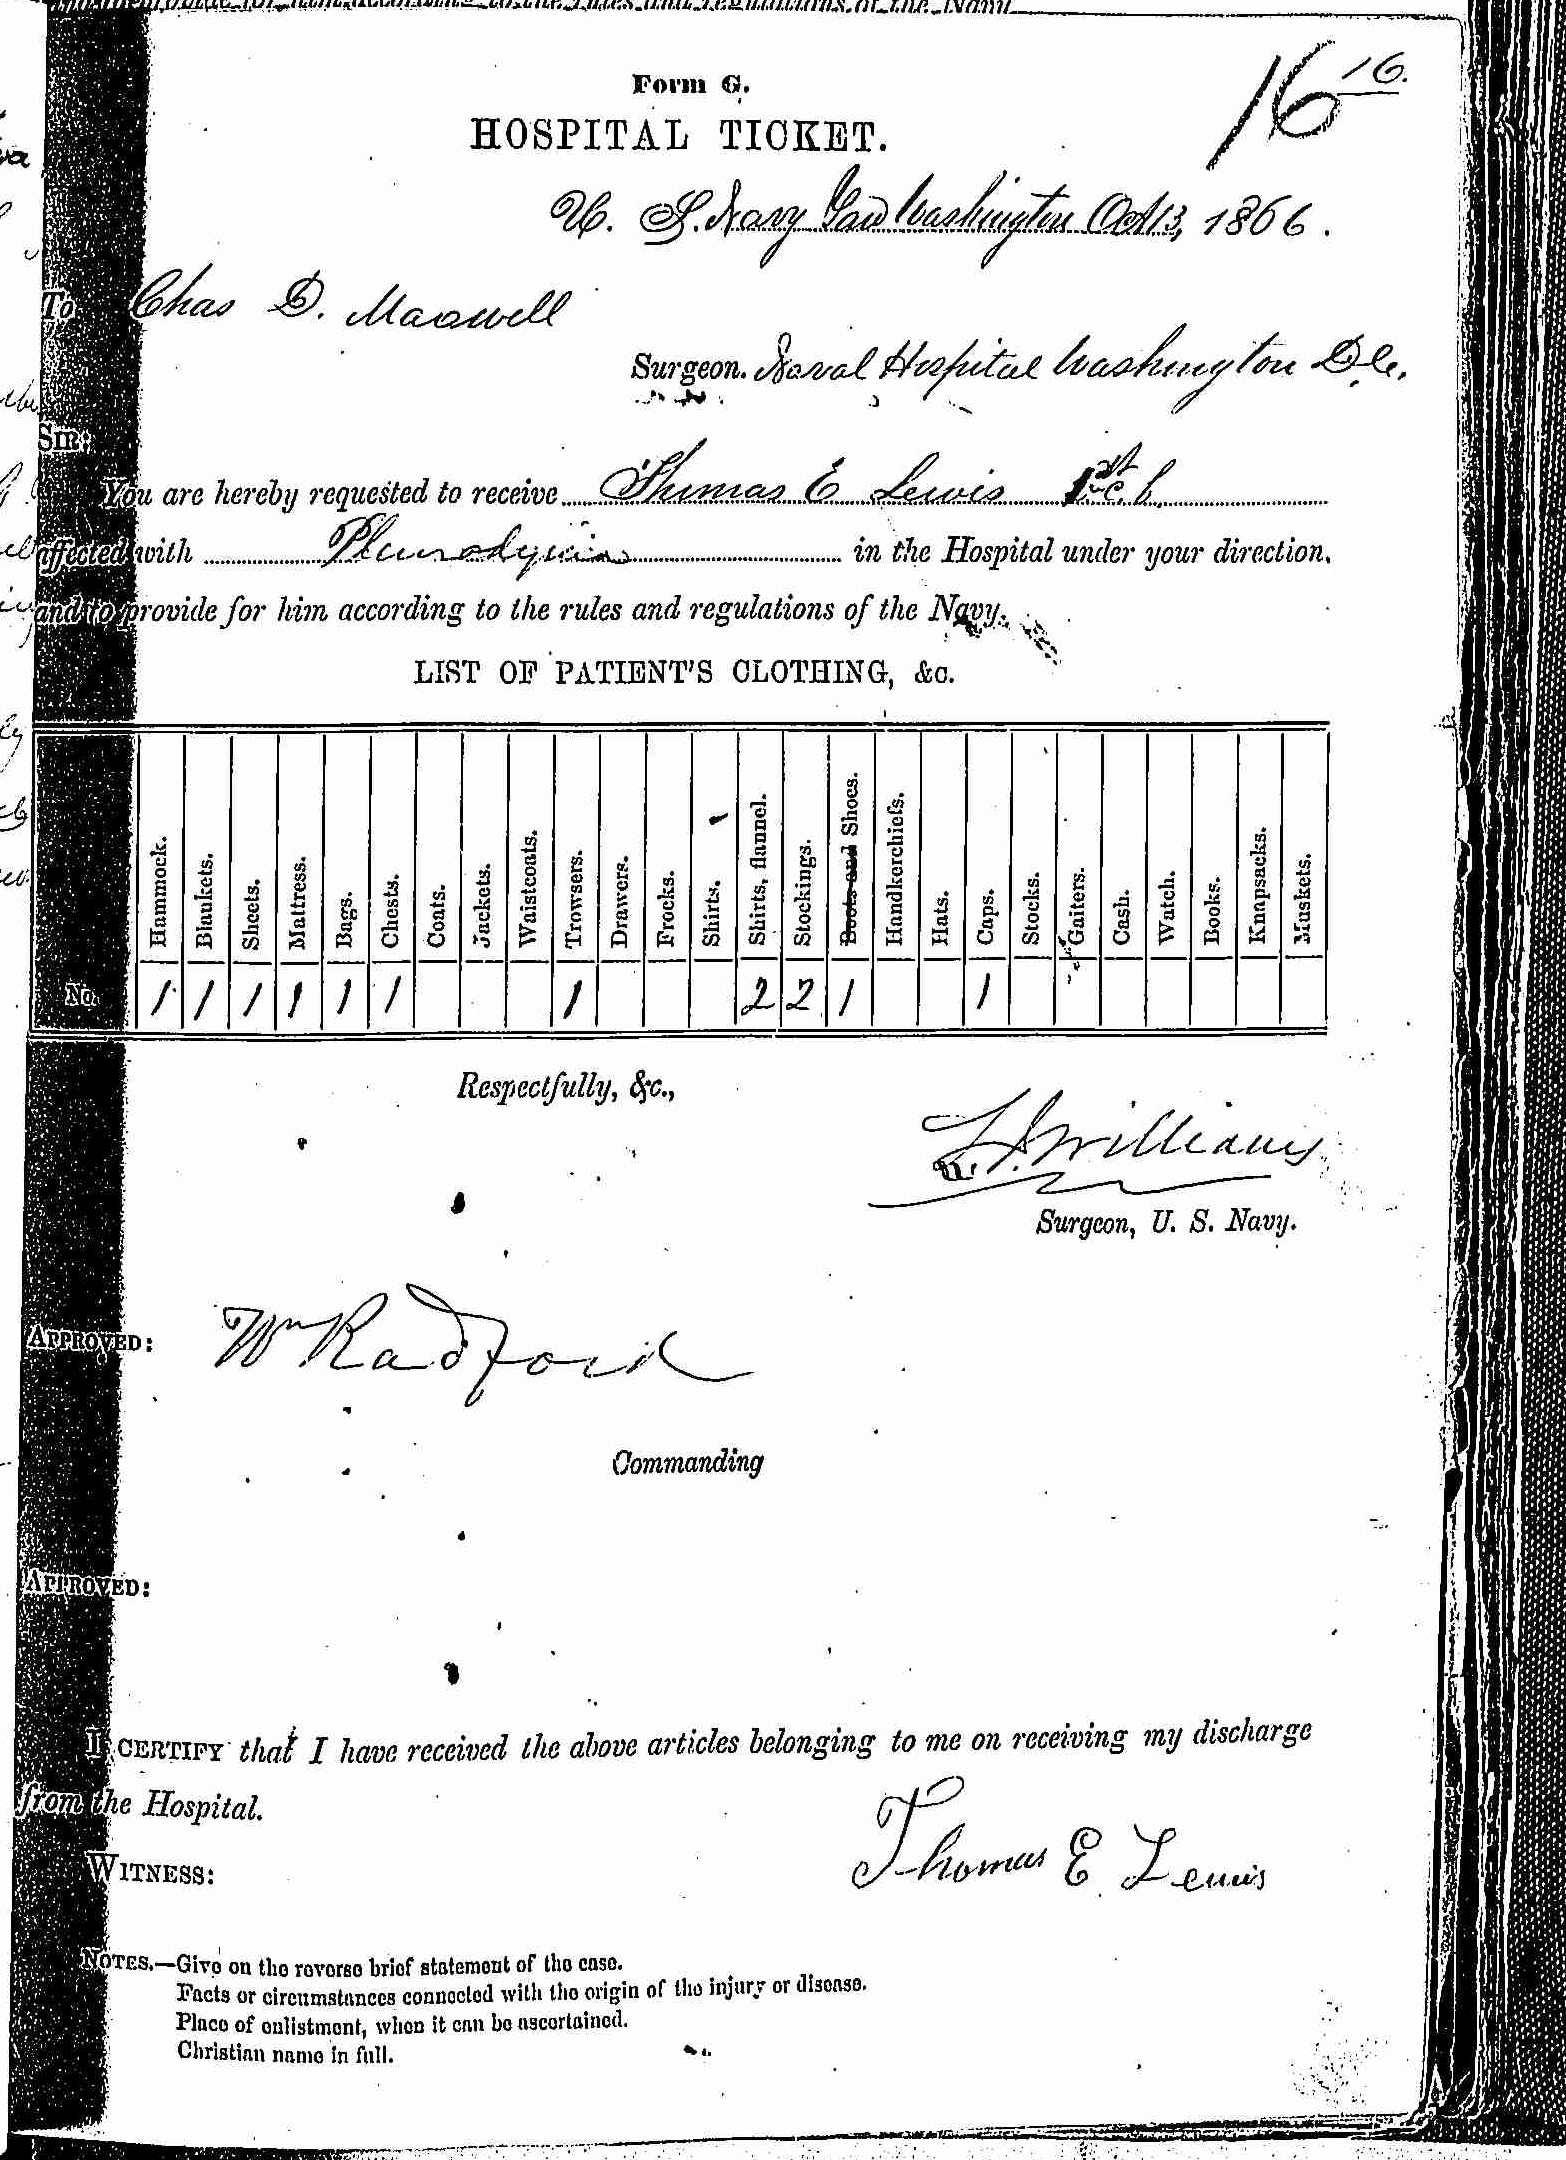 and to provide for him according to the rules and regulations of the Navy
Form G.
16 16.
HOSPITAL TICKET.
U. S. Navy Yard Washington Oct 13, 1866.
To Chas D. Maxwell
Surgeon. Naval Hospital Washington D.C.
SIR:
You are hereby requested to receive Thomas E Lewis 1st C. b.
affected with Pleurodynia in the Hospital under your direction,
and to provide for him according to the rules and regulations of the Navy.
LIST OF PATIENT'S CLOTHING, &c.
Hammock. Blankets. Sheets. Mattress. Bags. Chests. Coats. Jackets. Waistcoats. Trowsers. Drawers. Frocks. Shirts. Shirts, flannel. Stockings. Boots and Shoes. Handkerchiefs. Hats. Caps. Stocks. Gaiters. Cash. Watch. Books. Knapsacks. Muskets.
No. 1 1 1 1 1 1 1 2 2 1 1
Respectfully, &c.,
Williams
Surgeon, U. S. Navy.
APPROVED: Wm Radford
Commanding
APPROVED:
I CERTIFY that I have received the above articles belonging to me on receiving my discharge
from the Hospital.
Thomas E Lewis
WITNESS:
NOTES.—Give on the reverse brief statement of the case.
Facts or circumstances connected with the origin of the injury or disease.
Place of enlistment, when it can be ascertained.
Christian name in full.